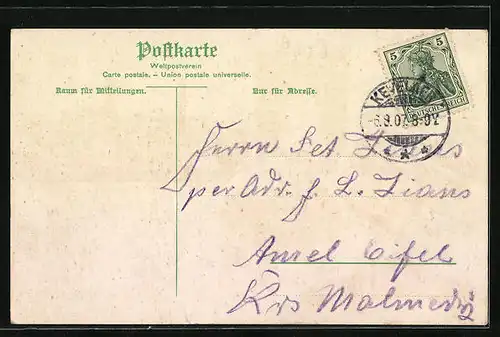 Postkarte
Weltpostverein
Carte postale. – Union postale universelle.
Raum für Mitteilungen.
Nur für Adresse.
5 5
DEUTSCHES REICH
KEVELAER
6.9.07. 8-9V.
Herrn Pet
per Adr. J. L. Zians
Amel Eifel
Krs Malmedy
2